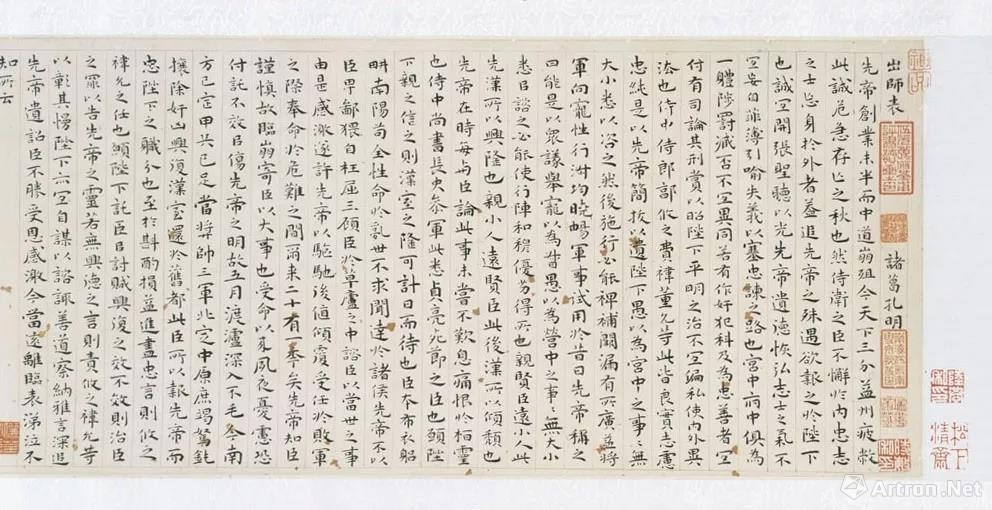 出師表 諸葛孔明
先帝創業未半而中道崩殂今天下三分益州疲敝
此誠危急存亡之秋也然侍衛之臣不懈於内忠志
之士忘身於外者蓋追先帝之殊遇欲報之於陛下
也誠宜開張聖聽以光先帝遺德恢弘志士之氣不
宜妄自菲薄引喻失義以塞忠諫之路也宮中府中俱為
一體陟罰臧否不宜異同若有作奸犯科及為忠善者宜
付有司論其刑賞以昭陛下平明之治不宜偏私使内外異
法也侍中侍郎郭攸之費禕董允等此皆良實志慮
忠純是以先帝簡拔以遺陛下愚以為宮中之事〻無
大小悉以咨之然後施行必能裨補闕漏有所廣益將
軍向寵性行淑均曉暢軍事試用於昔日先帝稱之
曰能是以衆議舉寵以為督愚以為營中之事〻無大小
悉以諮之必能使行陣和穆優劣得所也親賢臣遠小人此
先漢所以興隆也親小人遠賢臣此後漢所以傾頹也
先帝在時每與臣論此事未嘗不歎息痛恨於桓靈
也侍中尚書長史參軍此悉貞亮死節之臣也願陛
下親之信之則漢室之隆可計日而待也臣本布衣躬
耕南陽苟全性命於亂世不求聞達於諸侯先帝不以
臣卑鄙猥自枉屈三顧臣於草廬之中諮臣以當世之事
由是感激遂許先帝以驅馳後值傾覆受任於敗軍
之際奉命於危難之間爾来二十有一年矣先帝知臣
謹慎故臨崩寄臣以大事也受命以来夙夜憂慮恐
付託不效以傷先帝之明故五月渡瀘深入不毛今南
方已定甲兵已足當將帥三軍北定中原庶竭駑鈍
攘除奸凶興復漢室還於舊都此臣所以報先帝而
忠陛下之職分也至於斟酌損益進盡忠言則攸之
禕允之任也願陛下託臣以討賊興復之效不效則治臣
之罪以告先帝之靈若無興德之言則責攸之禕允等
以彰其慢陛下亦宜自謀以諮諏善道察納雅言深追
先帝遺詔臣不勝受恩感激今當遠離臨表涕泣不
知所云
松下清齋
Artron.Net